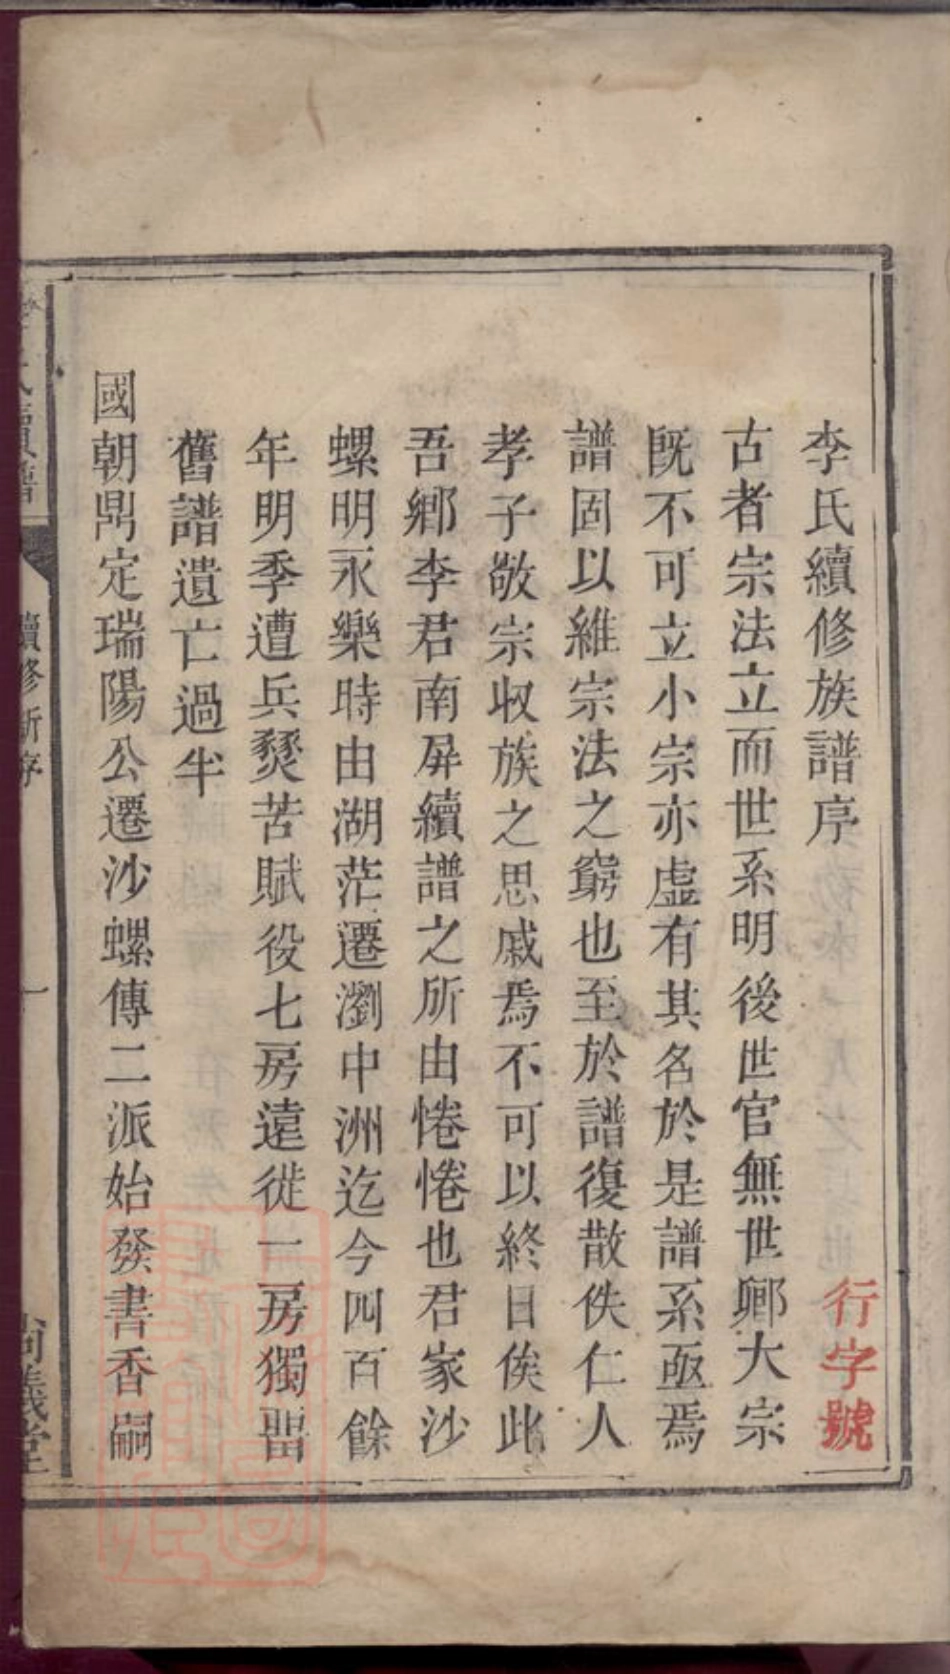 李氏續修族譜序
行字號
古者宗法立而世系明後世官無世卿大宗
既不可立小宗亦虛有其名於是譜系亟焉
譜固以維宗法之窮也至於譜復散佚仁人
孝子敬宗收族之思戚焉不可以終日俟此
吾鄉李君南屏續譜之所由惓惓也君家沙
螺明永樂時由湖茫遷瀏中洲迄今四百餘
年明季遭兵燹苦賦役七房遠徙一房獨畱
舊譜遺亡過半
國朝鼎定瑞陽公遷沙螺傳二派始發書香嗣
李氏續譜
續修新序
一
尚義堂